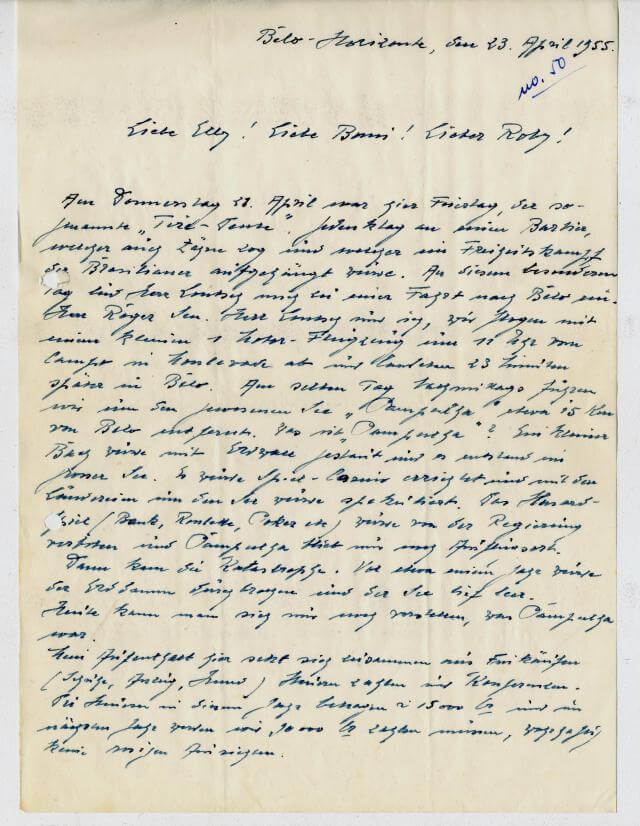 Belo-Horizonte, den 23. April 1955.
no. 50
Liebe Elly! Liebe Bomi! Lieber Roby!
Am Donnerstag 21. April war hier Feiertag, der so-
genannte „Tira-Dente". Gedenktag an einen Barbier,
welcher auch Zähne zog und welcher im Freiheitskampf
der Brasilianer aufgehängt wurde. An diesem besonderen
Tag lud Herr mich bei einer Fahrt nach Belo ein.
Herr Roger Sen. Herr und ich, wir flogen mit
einem kleinen 1 Motor-Flugzeug um 11 Uhr vom
Campo in Monlevade ab und landeten 23 Minuten
später in Belo. Am selben Tag nachmittags fuhren
wir um den gewesenen See „Pampulha" etwa 15 Km
von Belo entfernt. Was ist „Pampulha"? Ein kleiner
Bach wurde mit Erdwall gestaut und es entstand ein
grosser See. Es wurde Spiel-Casino errichtet und mit den
Ländereien um den See wurde spekuliert. Das Hasard-
spiel (Bank, Roulette, Poker etc) wurde von der Regierung
verboten und Pampulha blieb nur noch Ausflugsort.
Dann kam die Katastrophe. Vor etwa einem Jahr wurde
der Erddamm durchbrochen und der See lief leer.
Heute kann man sich nur noch vorstellen, was Pampulha
war.
Mein Aufenthalt hier setzt sich zusammen aus Einkäufen
(Schuhe, Anzug, Hemd) Steuern zahlen und Konferenzen.
Die Steuern in diesem Jahr betragen 15000 Cr und im
nächsten Jahr werden wir 30000 Cr zahlen müssen,
keine rosigen Aussichten.